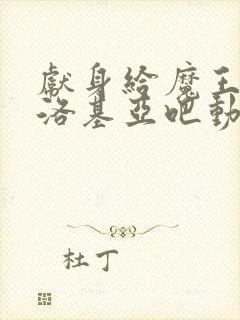 獻身給魔王
洛基亞吧動
杜丁